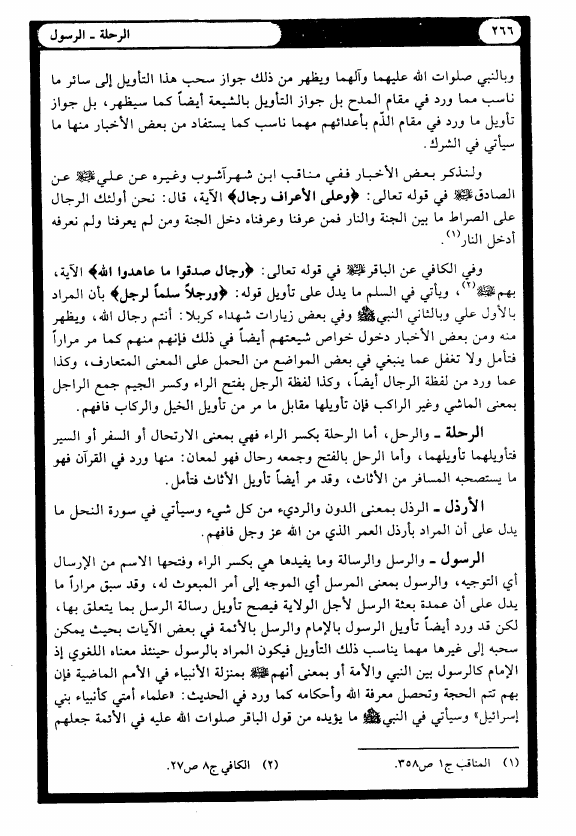 ٢٦٦
الرحلة ـ الرسول
وبالنبي صلوات الله عليهما وآلهما ويظهر من ذلك جواز سحب هذا التأويل إلى سائر ما
ناسب مما ورد في مقام المدح بل جواز التأويل بالشيعة أيضاً كما سيظهر، بل جواز
تأويل ما ورد في مقام الذّم بأعدائهم مهما ناسب كما يستفاد من بعض الأخبار منها ما
سيأتي في الشرك.
ولنذكر بعض الأخبار ففي مناقب ابن شهرآشوب وغيره عن علي ﷺ عن
الصادق ﷺ في قوله تعالى: ﴿وعلى الأعراف رجال﴾ الآية، قال: نحن أولئك الرجال
على الصراط ما بين الجنة والنار فمن عرفنا وعرفناه دخل الجنة ومن لم يعرفنا ولم نعرفه
أدخل النار(١).
وفي الكافي عن الباقر ﷺ في قوله تعالى: ﴿رجال صدقوا ما عاهدوا الله﴾ الآية،
بهم ﷺ(٢)، ويأتي في السلم ما يدل على تأويل قوله: ﴿ورجلاً سلماً لرجل﴾ بأن المراد
بالأول علي وبالثاني النبي ﷺ وفي بعض زيارات شهداء كربلا: أنتم رجال الله، ويظهر
منه ومن بعض الأخبار دخول خواص شيعتهم أيضاً في ذلك فإنهم منهم كما مر مراراً
فتأمل ولا تغفل عما ينبغي في بعض المواضع من الحمل على المعنى المتعارف، وكذا
عما ورد من لفظة الرجال أيضاً، وكذا لفظة الرجل بفتح الراء وكسر الجيم جمع الراجل
بمعنى الماشي وغير الراكب فإن تأويلها مقابل ما مر من تأويل الخيل والركاب فافهم.
الرحلة ـ والرحل، أما الرحلة بكسر الراء فهي بمعنى الارتحال أو السفر أو السير
فتأويلهما تأويلهما، وأما الرحل بالفتح وجمعه رحال فهو لمعان: منها ورد في القرآن فهو
ما يستصحبه المسافر من الأثاث، وقد مر أيضاً تأويل الأثاث فتأمل.
الأرذل ـ الرذل بمعنى الدون والرديء من كل شيء وسيأتي في سورة النحل ما
يدل على أن المراد بأرذل العمر الذي من الله عز وجل فافهم.
الرسول ـ والرسل والرسالة وما يفيدها هي بكسر الراء وفتحها الاسم من الإرسال
أي التوجيه، والرسول بمعنى المرسل أي الموجه إلى أمر المبعوث له، وقد سبق مراراً ما
يدل على أن عمدة بعثة الرسل لأجل الولاية فيصح تأويل رسالة الرسل بما يتعلق بها،
لكن قد ورد أيضاً تأويل الرسول بالإمام والرسل بالأئمة في بعض الآيات بحيث يمكن
سحبه إلى غيرها مهما يناسب ذلك التأويل فيكون المراد بالرسول حينئذ معناه اللغوي إذ
الإمام كالرسول بين النبي والأمة أو بمعنى أنهم ﷺ بمنزلة الأنبياء في الأمم الماضية فإن
بهم تتم الحجة وتحصل معرفة الله وأحكامه كما ورد في الحديث: «علماء أمتي كأنبياء بني
إسرائيل» وسيأتي في النبي ﷺ ما يؤيده من قول الباقر صلوات الله عليه في الأئمة جعلهم
(١) المناقب ج١ ص٣٥٨.
(٢) الكافي ج٨ ص٢٧.